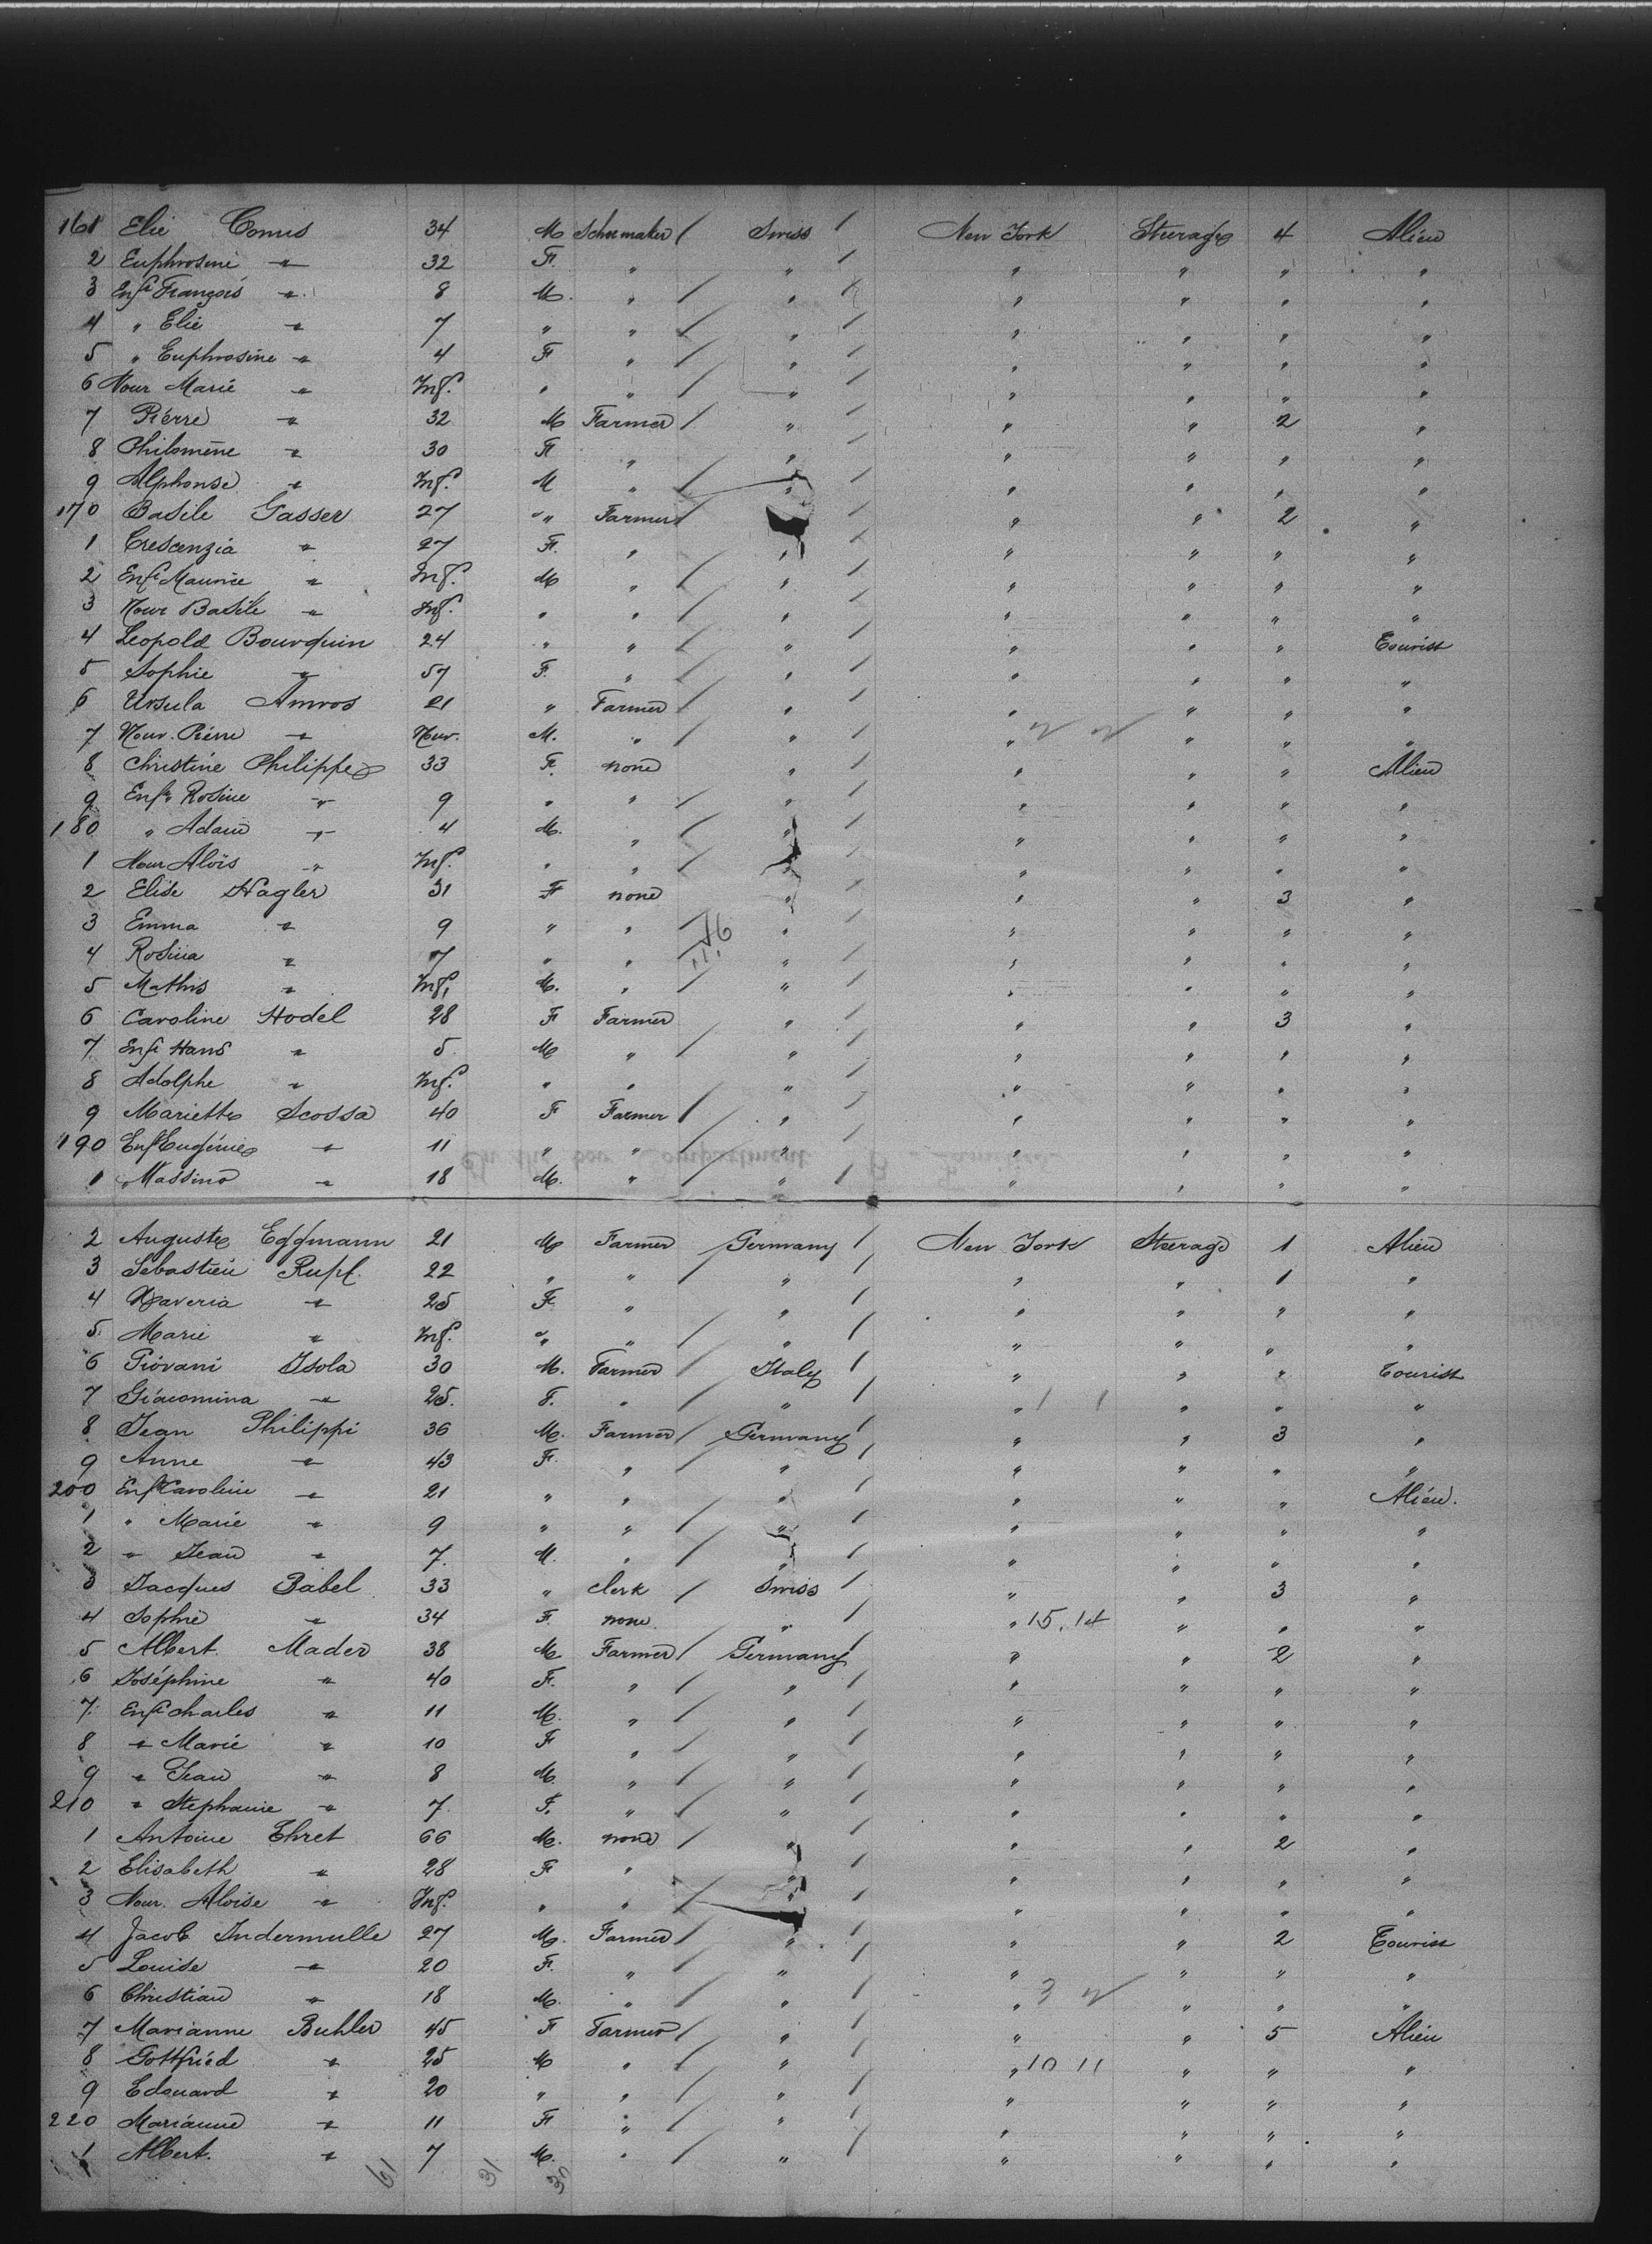 161 Elie Comis 34 M Schumaker / Swiss / New York Steerage 4 Alien
2 Euphrosine " 32 F. " " / " " " "
3 Enft François " 8 M. " / " / " " " "
4 " Elie " 7 " " / " / " " " "
5 " Euphrosine " 4 F " / " / " " " "
6 Nour Marie " Inf. " " / " / " " " "
7 Pierre " 32 M Farmer / " / " " 2 "
8 Philomène " 30 F " " / " " " "
9 Alphonse " Inf. M " / " / " " " "
170 Basile Gasser 27 " Farmer / " / " " 2 "
1 Crescenzia " 27 F. " " / " " " "
2 Enft Maurice " Inf. M " / " / " " " "
3 Nour Basile " Inf. " " / " / " " " "
4 Leopold Bourquin 24 " " / " / " " " Tourist
5 Sophie " 57 F. " / " / " " " "
6 Ursula Amros 21 " Farmer / " / " " " "
7 Nour. Pierre " Nour. M. " / " / " " " "
8 Christine Philippe 33 F. none " / " " " Alien
9 Enft Rosine " 9 " " / " / " " " "
180 " Adam " 4 M. " / " / " " " "
1 Nour Aloïs " Inf. " " / " / " " " "
2 Elise Hagler 31 F none " / " " 3 "
3 Emma " 9 " " / " / " " " "
4 Rosina " 7 " " / " / " " " "
5 Mathis " Inf. M. " / " / " " " "
6 Caroline Hodel 28 F Farmer " / " " 3 "
7 Enft Hans " 5 M " / " / " " " "
8 Adolphe " Inf. " " / " / " " " "
9 Mariette Scossa 40 F Farmer / " / " " " "
190 Enft Eugénie " 11 " " / " / " " " "
1 " Massino " 18 M. " / " / " " " "
2 Auguste Eggmann 21 M Farmer / Germany / New York Steerage 1 Alien
3 Sebastien Rupf. 22 " " / " / " " 1 "
4 Xaveria " 25 F " / " / " " " "
5 Marie " Inf. " " / " / " " " "
6 Giovani Isola 30 M. Farmer / Italy / " " " Tourist
7 Giacomina " 25. F. " / " / " 1 1 " " "
8 Jean Philippi 36 M. Farmer / Germany / " " 3 "
9 Anne " 43 F. " / " / " " " "
200 Enft Caroline " 21 " " / " / " " " Alien.
1 " Marie " 9 " " / " / " " " "
2 " Jean " 7. M. " / " / " " " "
3 Jacques Babel 33 " Clerk / Swiss / " " 3 "
4 Sophie " 34 F. none. " / " 15. 14 " " "
5 Albert Mader 38 M Farmer / Germany / " " 2 "
6 Joséphine " 40 F. " / " / " " " "
7 Enft Charles " 11 M. " / " / " " " "
8 " Marie " 10 F " / " / " " " "
9 " Jean " 8 M. " / " / " " " "
210 " Stephanie " 7. F. " / " / " " " "
1 Antoine Ehret 66 M. none / " / " " 2 "
2 Elisabeth " 28 F " / " / " " " "
3 Nour. Aloise " Inf. " " / " / " " " "
4 Jacob Indermulle 27 M. Farmer / " / " " 2 Tourist
5 Louise " 20 F. " / " / " " " "
6 Christian " 18 M. " / " / " 3 " " "
7 Marianne Buhler 45 F Farmer / " / " " 5 Alien
8 Gottfried " 25 M " / " / " 10 11 " " "
9 Edouard " 20 " " / " / " " " "
220 Marianne " 11 F " / " / " " " "
1 Albert. " 7 M. " / " / " " " "
61 31 30